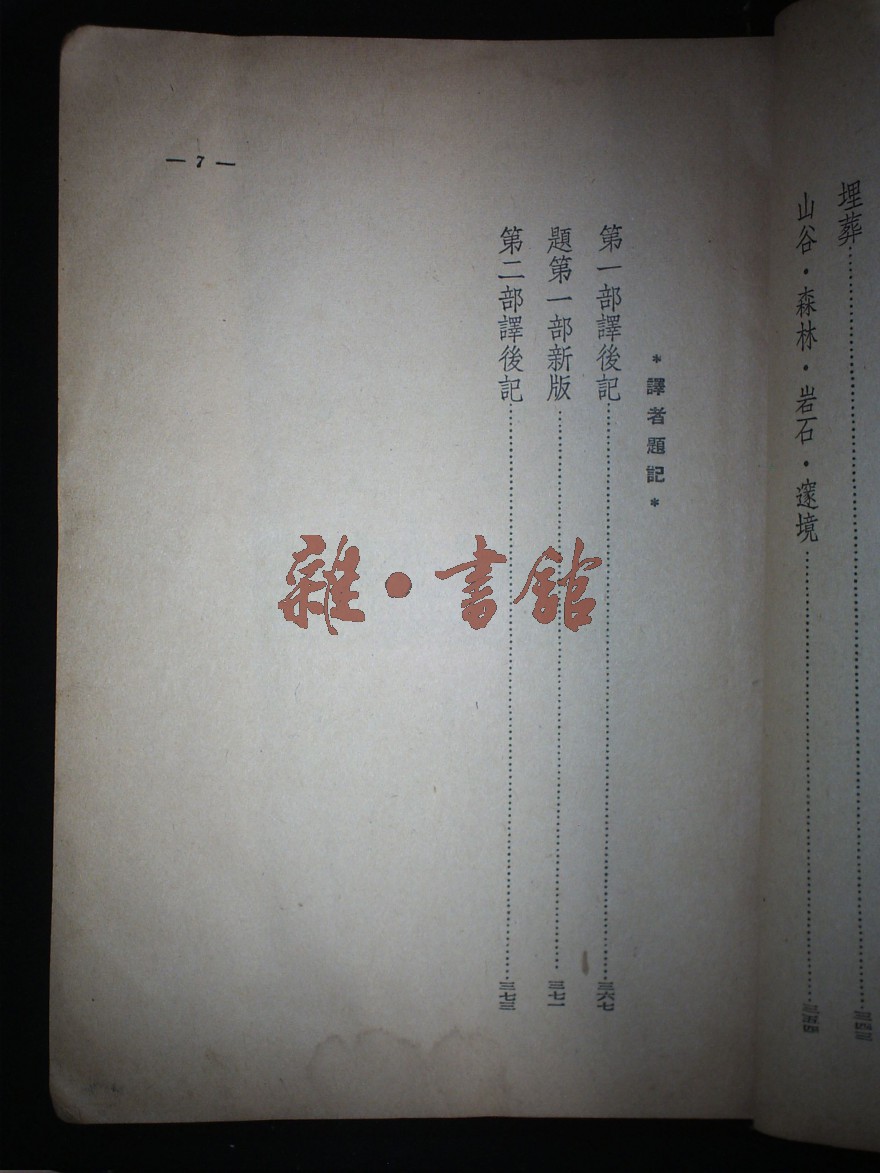 埋葬……三四三
山谷·森林·岩石·邃境……三五四
*譯者題記*
第一部譯後記……三六七
題第一部新版……三七一
第二部譯後記……三七三
— 7 —
雜·書館